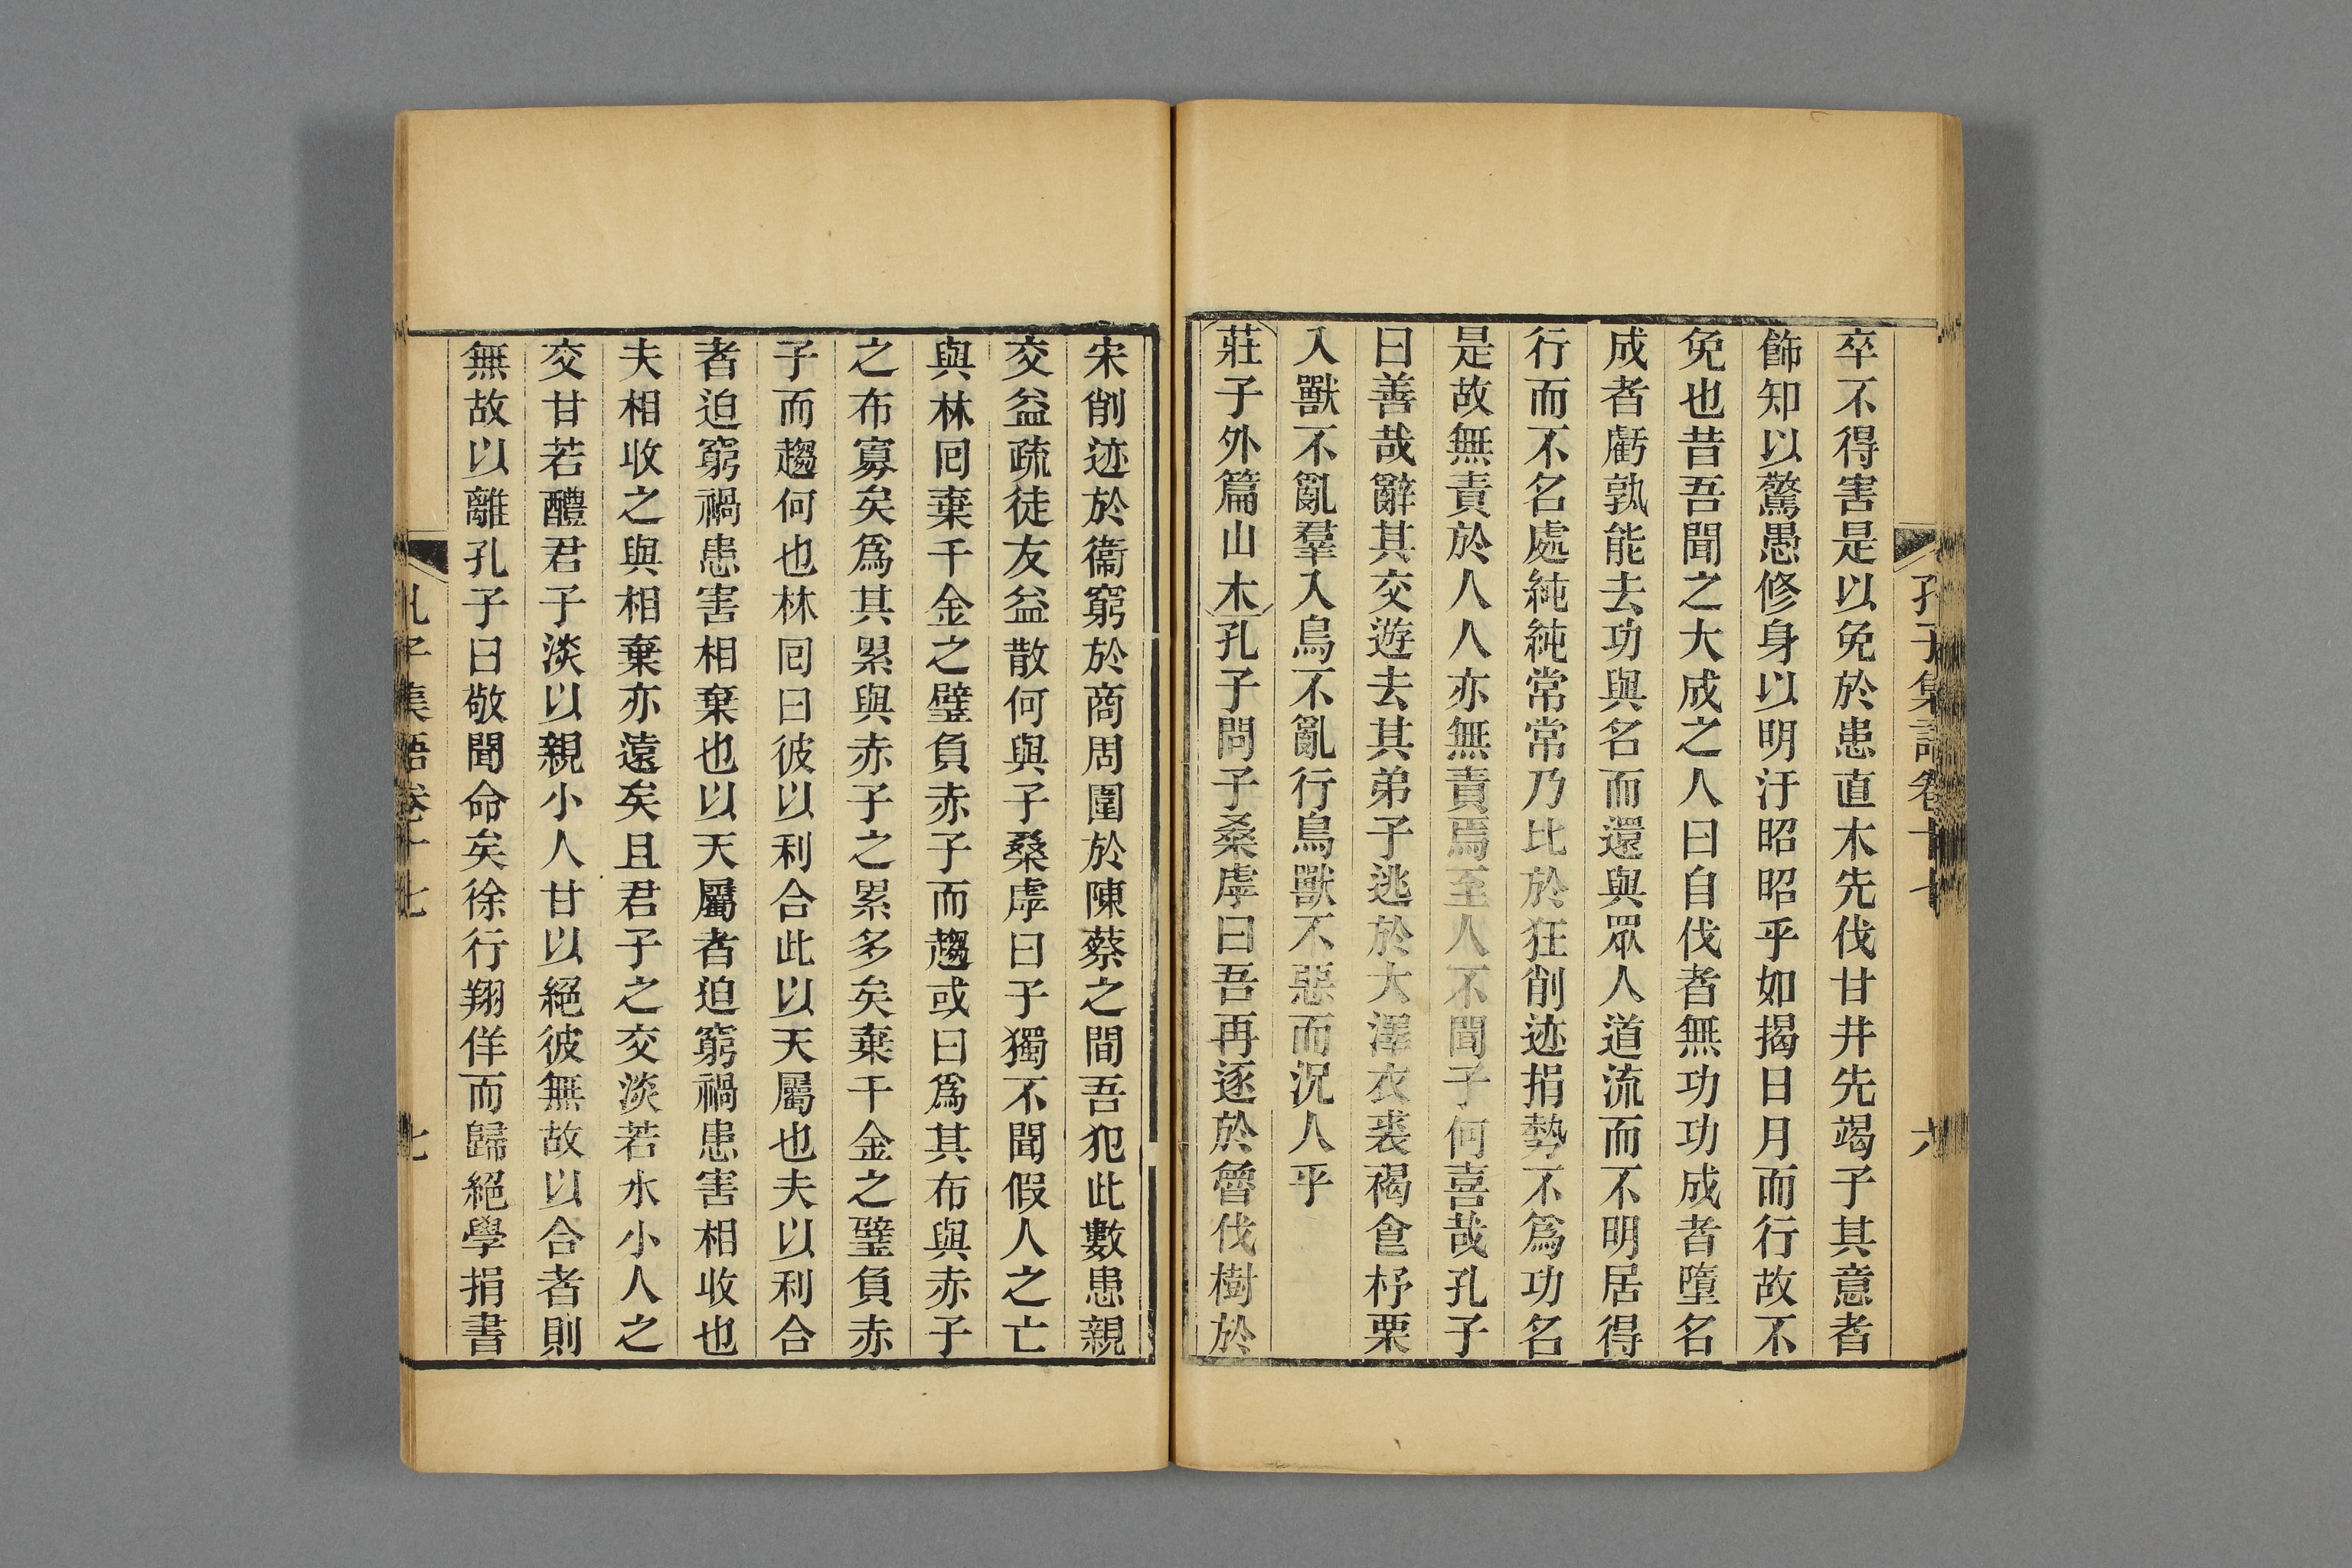 孔子集語卷十七 六
卒不得害是以免於患直木先伐甘井先竭子其意者
飾知以驚愚修身以明汙昭昭乎如揭日月而行故不
免也昔吾聞之大成之人曰自伐者無功功成者墮名
成者虧孰能去功與名而還與眾人道流而不明居得
行而不名處純純常常乃比於狂削迹捐勢不爲功名
是故無責於人人亦無責焉至人不聞子何喜哉孔子
曰善哉辭其交遊去其弟子逃於大澤衣裘褐食杼栗
入獸不亂羣入鳥不亂行鳥獸不惡而況人乎
莊子外篇山木孔子問子桑虖曰吾再逐於魯伐樹於
宋削迹於衞窮於商周圍於陳蔡之間吾犯此數患親
交益疏徒友益散何與子桑虖曰子獨不聞假人之亡
與林囘棄千金之璧負赤子而趨或曰爲其布與赤子
之布寡矣爲其累與赤子之累多矣棄千金之璧負赤
子而趨何也林囘曰彼以利合此以天屬也夫以利合
者迫窮禍患害相棄也以天屬者迫窮禍患害相收也
夫相收之與相棄亦遠矣且君子之交淡若水小人之
交甘若醴君子淡以親小人甘以絕彼無故以合者則
無故以離孔子曰敬聞命矣徐行翔佯而歸絕學捐書
孔子集語卷十七 七